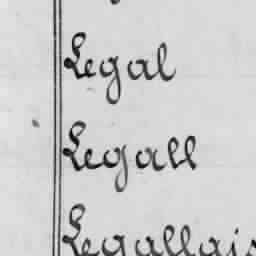 Legal
Legall
Legallais